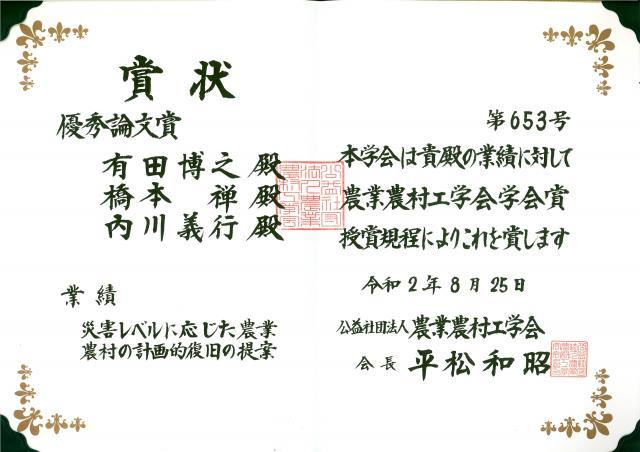 賞状
優秀論文賞
有田博之殿
橋本禅殿
内川義行殿
業績
災害レベルに応じた農業
農村の計画的復旧の提案
第653号
本学会は貴殿の業績に対して
農業農村工学会学会賞
授賞規程によりこれを賞します
令和2年8月25日
公益社団法人農業農村工学会
会長 平松和昭